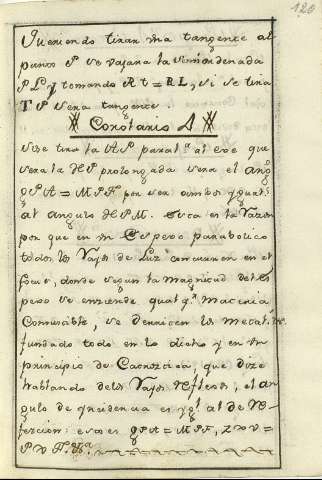 120
Queriendo tirar una tangente al
punto P se vajara la semiordenada
PL y tomando Rt = RL, si se tira
TP sera tangente.
Corolario 1
Si se tira la AP paral.ª al exe que
sera la HP prolongada sera el ang
gPA = MPF por ser ambos yguales
al angulo HPM. esta es la razon
por que en un Espejo parabolico
todos los rayos de Luz concurren en el
focus, donde segun la magnitud del es
pejo se enziende qualq.ª materia
Combustible, se derriten los metal.s
fundado todo en lo dicho y en un
principio de Catoptrica, que dize
hablando delos rayos reflexos, el an
gulo de yncidencia es ygl. al de re
flexcion: esto es gPA = MPF, ZXV =